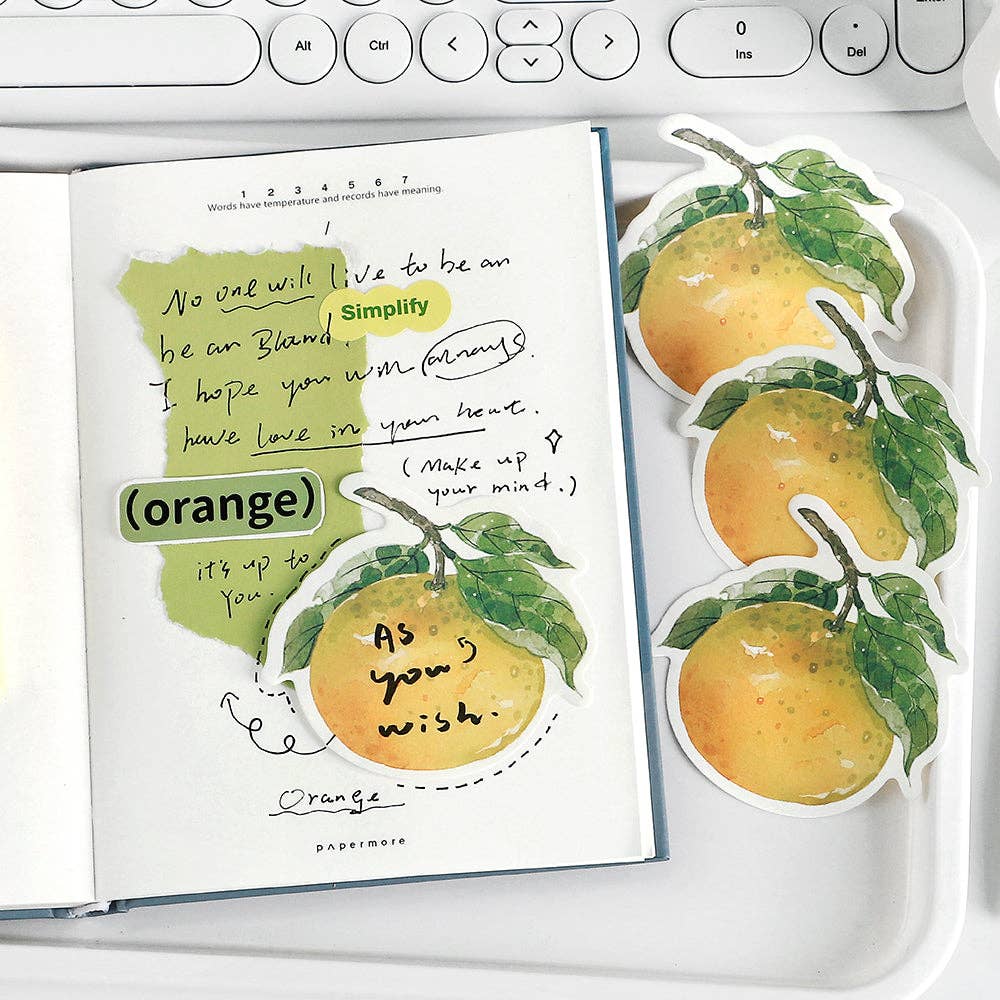 Alt Ctrl < > 0 Ins . Del
1 2 3 4 5 6 7
Words have temperature and records have meaning.
No one will live to be an
Simplify
be an
I hope you will always.
have love in your heart.
(Make up
your mind.)
(orange)
it's up to
you.
As
you
wish.
Orange
papermore